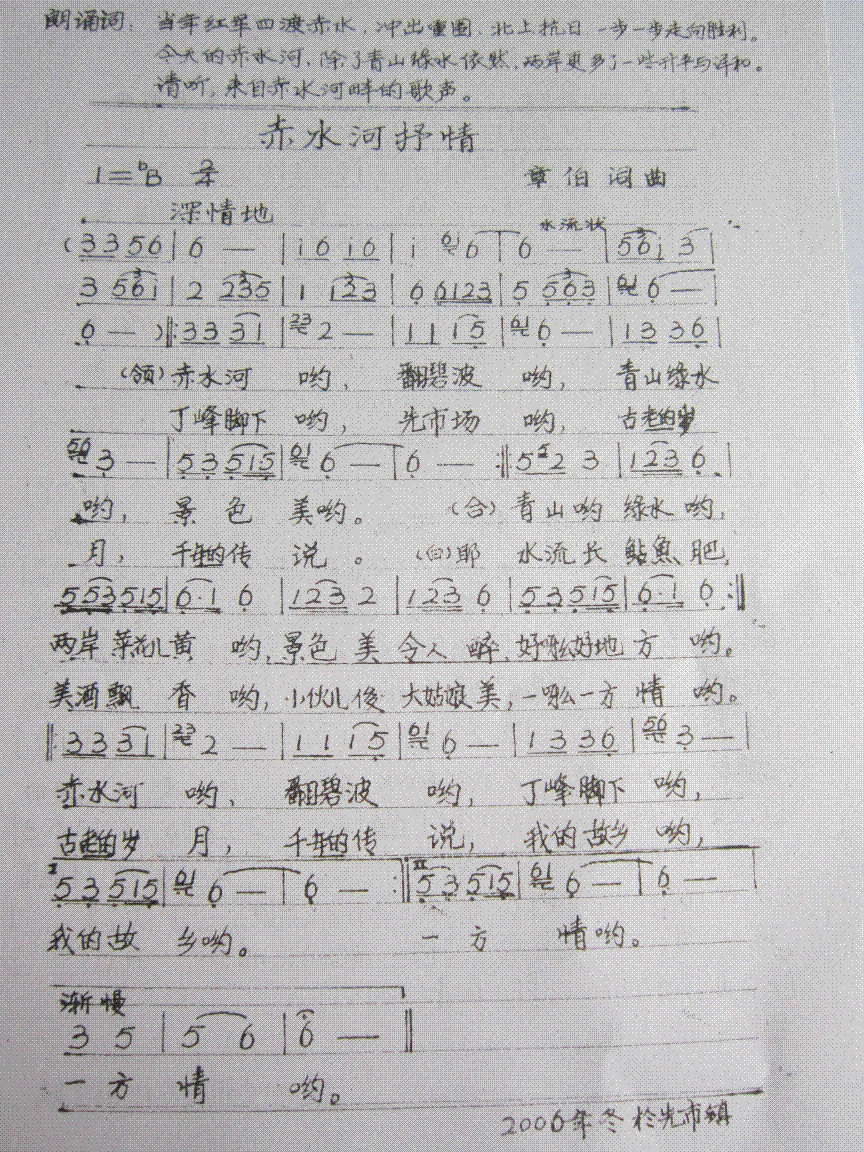 朗诵词：当年红军四渡赤水，冲出重围，北上抗日一步一步走向胜利。
今天的赤水河，除了青山绿水依然，两岸更多了一些升平与详和。
请听，来自赤水河畔的歌声。
赤水河抒情
1=bB 2/4 章伯词曲
深情地
水流状
(3 3 5 6 | 6 — | i 6 i 6 | i 6i 6 | 6 — | 5 6 i 3 |
3 5 6 i | 2 2 3 5 | 1 1 2 3 | 6 6 1 2 3 | 5 5 6 3 | 61 6 — |
6 — )‖: 3 3 3 1 | 23 2 — | 1 1 1 5 | 61 6 — | 1 3 3 6 |
(领)赤水河 哟， 翻碧波 哟， 青山绿水
丁峰脚下 哟， 先市场 哟， 古老的岁
56 3 — | 5 3 5 1 5 | 61 6 — | 6 — :‖ 5 5 2 3 | 1 2 3 6 |
哟， 景 色 美哟。 (合) 青山哟 绿水哟，
月， 千年的传 说 。 (白)耶 水流长 鲇鱼肥，
5 5 3 5 1 5 | 6 · 1 6 | 1 2 3 2 | 1 2 3 6 | 5 3 5 1 5 | 6 · 1 6 :‖
两岸菜花儿黄 哟，景色 美 令人 醉，好呀么好地 方 哟。
美酒飘 香 哟，小伙儿俊 大姑娘美，一呀么一方 情 哟。
‖: 3 3 3 1 | 23 2 — | 1 1 1 5 | 61 6 — | 1 3 3 6 | 56 3 — |
赤水河 哟， 翻碧波 哟， 丁峰脚下 哟，
古老的岁 月， 千年的传 说， 我的故乡 哟，
I 5 3 5 1 5 | 61 6 — | 6 — :‖ II 5 3 5 1 5 | 61 6 — | 6 — |
我的故 乡哟。 一 方 情哟。
渐慢
3 5 | 5 6 | 6 — ‖
一 方 情 哟。
2006年冬於先市镇